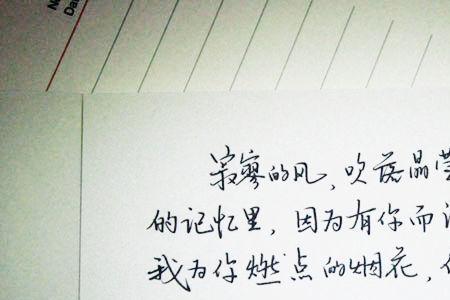 No
Da
寂寥的风,吹落晶莹
的记忆里,因为有你而
我为你燃点的烟花,